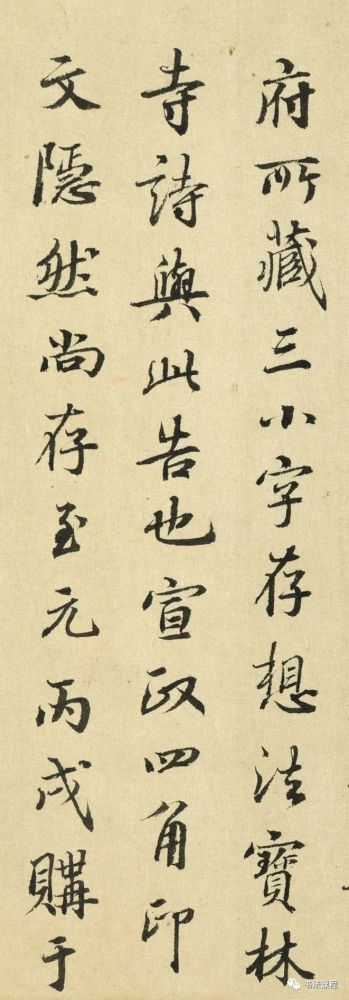 府所藏三小字存想法寶林
寺詩與此告也宣政四角印
文隱然尚存至元丙戌購于
书法教程